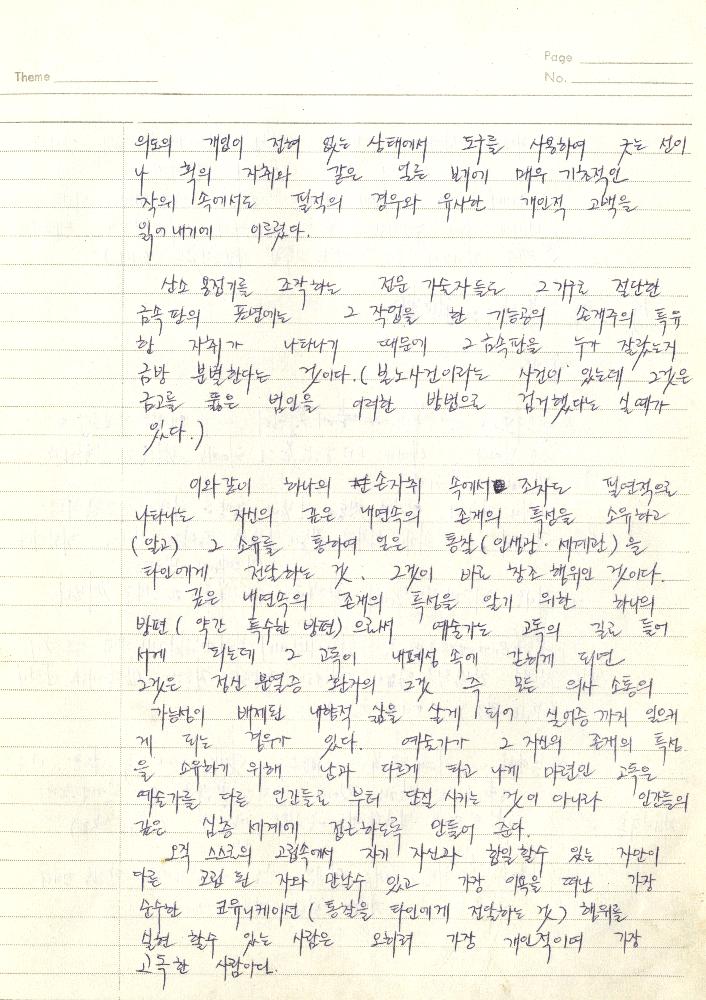 Page
Theme
No.
의도의 개입이 전혀 없는 상태에서 도구를 사용하여 긋는 선이
나 획의 자취와 같은 얼른 보기에 매우 기초적인
작위 속에서도 필적의 경우와 유사한 개인적 고백을
읽어내기에 이르렀다.
산소 용접기를 조작하는 전문 기술자들도 그가 절단한
금속판의 표면에는 그 작업을 한 기능공의 손재주의 특유
한 자취가 나타나기 때문에 그 금속판을 누가 잘랐는지
금방 분별한다는 것이다. (보노사건이라는 사건이 있는데 그것은
금고를 뚫은 범인을 이러한 방법으로 검거했다는 실예가
있다.)
이와같이 하나의 손자취 속에서 조차도 필연적으로
나타나는 자신의 깊은 내면속의 존재의 특성을 소유하고
(알고) 그 소유를 통하여 얻은 통찰 (인생관 · 세계관) 을
타인에게 전달하는 것. 그것이 바로 창조 행위인 것이다.
깊은 내면속의 존재의 특성을 알기 위한 하나의
방편 ( 약간 특수한 방편) 으로서 예술가는 고독의 길로 들어
서게 되는데 그 고독이 내폐성 속에 갇히게 되면
그것은 정신 분열증 환자의 그것 즉 모든 의사 소통의
가능성이 배제된 내향적 삶을 살게 되어 실어증 까지 일으키
게 되는 경우가 있다. 예술가가 그 자신의 존재의 특성
을 소유하기 위해 남과 다르게 타고 나게 마련인 고독은
예술가를 다른 인간들로 부터 단절 시키는 것이 아니라 인간들의
깊은 심층 세계에 접근하도록 만들어 준다.
오직 스스로의 고립속에서 자기 자신과 합일할수 있는 자만이
다른 고립 된 자와 만날수 있고 가장 이욕을 떠난 가장
순수한 코뮤니케이션 ( 통찰을 타인에게 전달하는 것 ) 행위를
실현 할수 있는 사람은 오히려 가장 개인적이며 가장
고독한 사람이다.